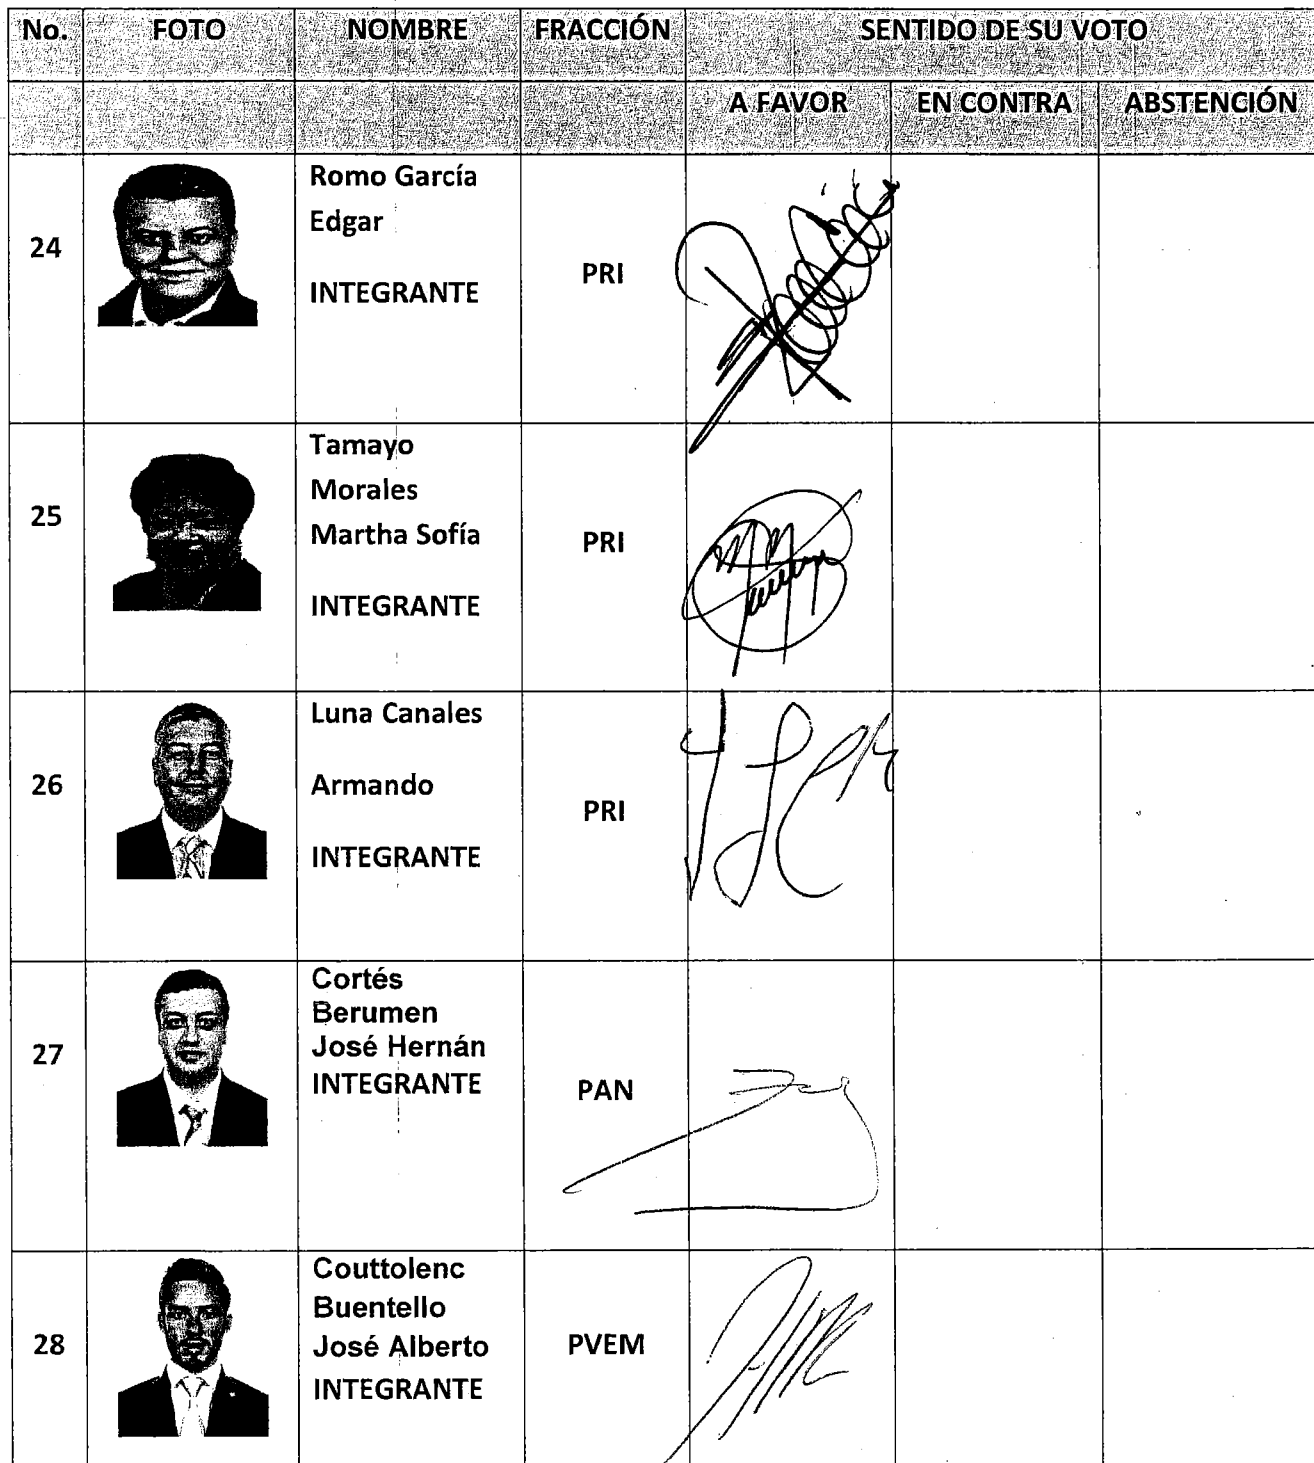 No. FOTO NOMBRE FRACCIÓN SENTIDO DE SU VOTO
A FAVOR EN CONTRA ABSTENCIÓN
24
Romo García
Edgar
INTEGRANTE
PRI
25
Tamayo
Morales
Martha Sofía
INTEGRANTE
PRI
26
Luna Canales
Armando
INTEGRANTE
PRI
27
Cortés
Berumen
José Hernán
INTEGRANTE
PAN
28
Couttolenc
Buentello
José Alberto
INTEGRANTE
PVEM